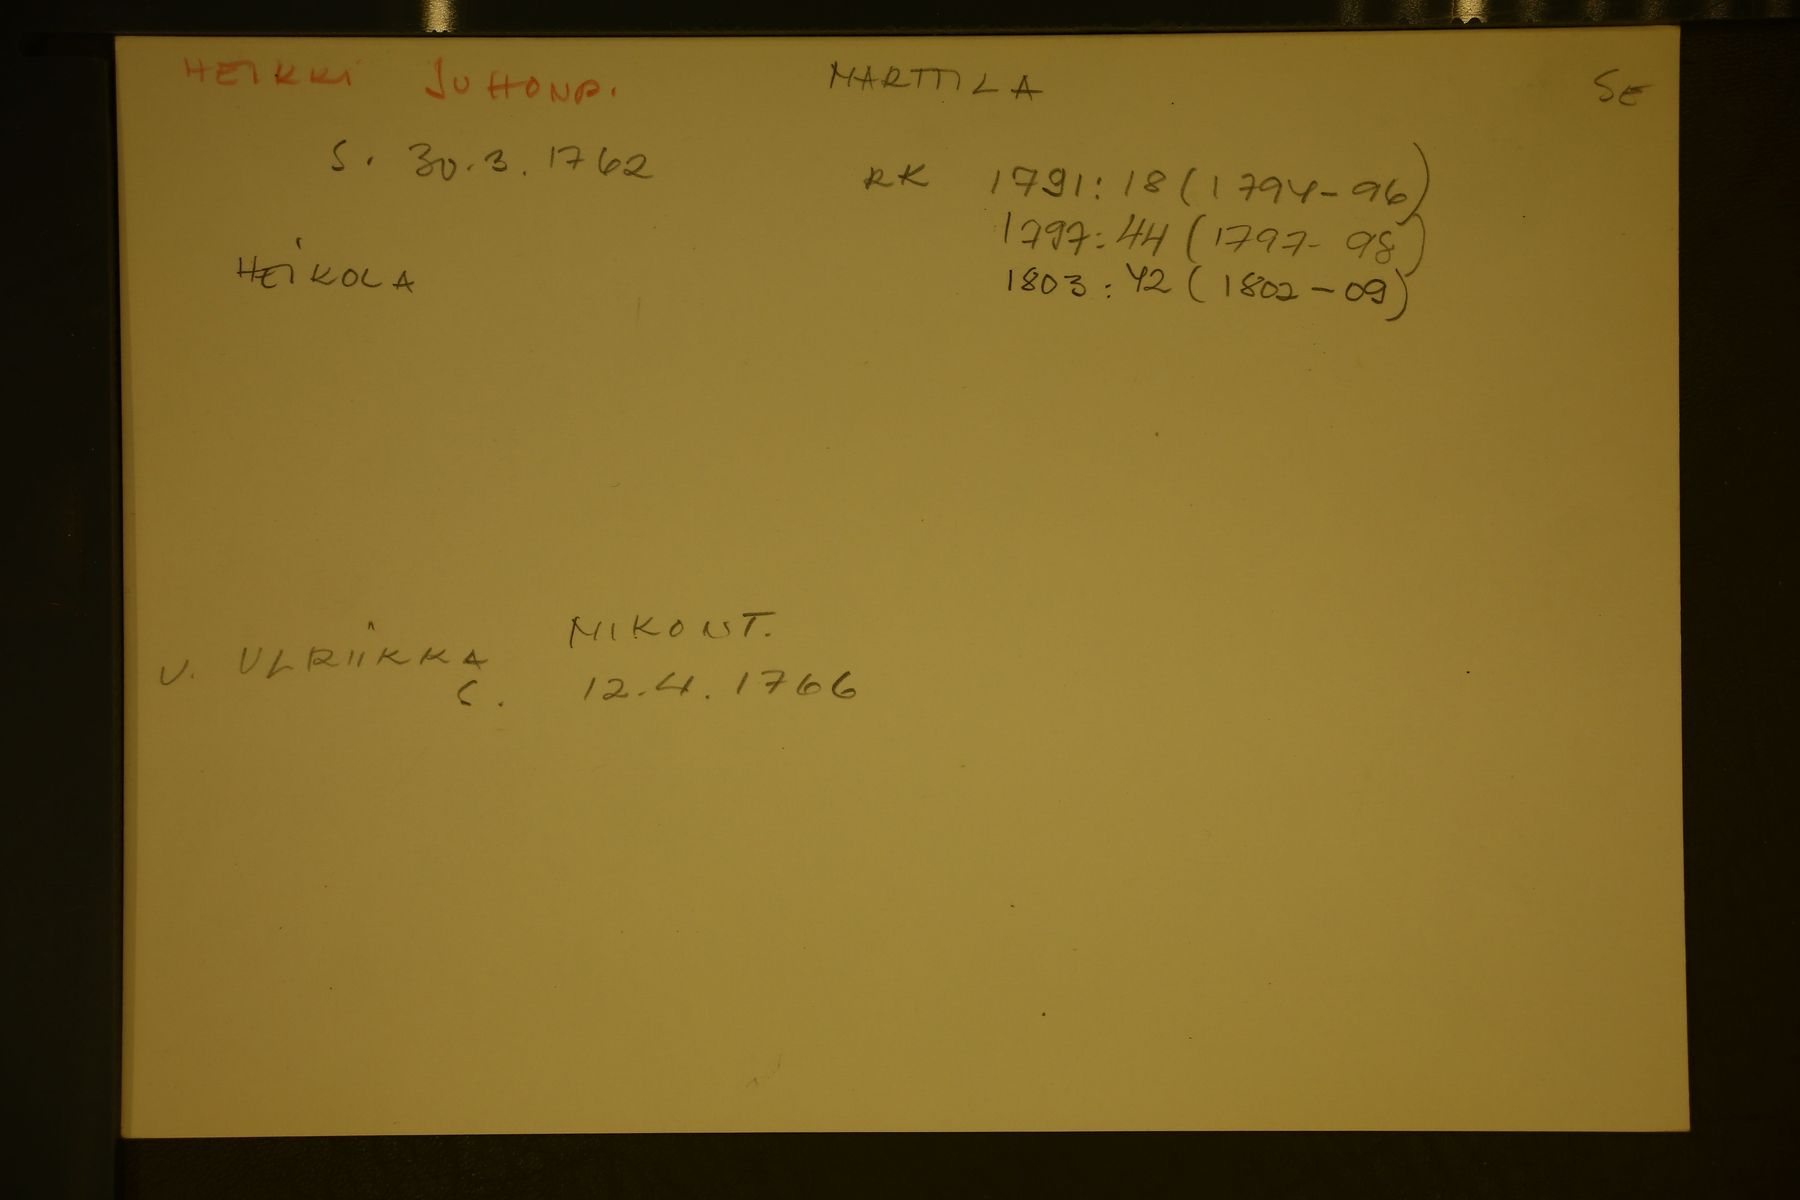 HEIKKI JUHONP. MARTTILA SE
S. 30.3.1762
RK 1791:18 (1794-96)
1797:44 (1797-98)
HEIKOLA
1803:42 (1802-09)
V. ULRIIKKA MIKONT.
S. 12.4.1766